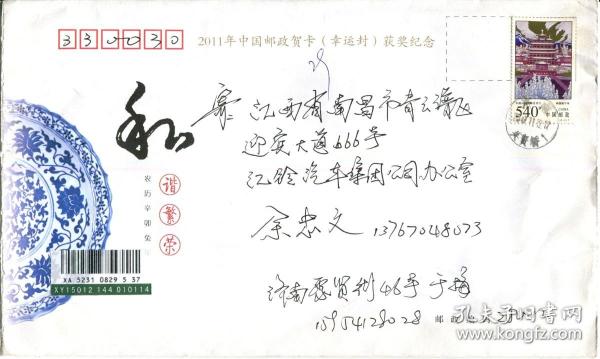 330030
2011年中国邮政贺卡（幸运封）获奖纪念
540
中国邮政
和
谐
繁
荣
农历辛卯兔年
寄 江西省南昌市青云谱区
迎宾大道666号
江铃汽车集团公司办公室
余忠文 13767048073
XA 5231 0829 5 37
XY15012 144 010114
济南 46号 于
15954128028
邮政编码
孔夫子旧书网
www.kongfz.com